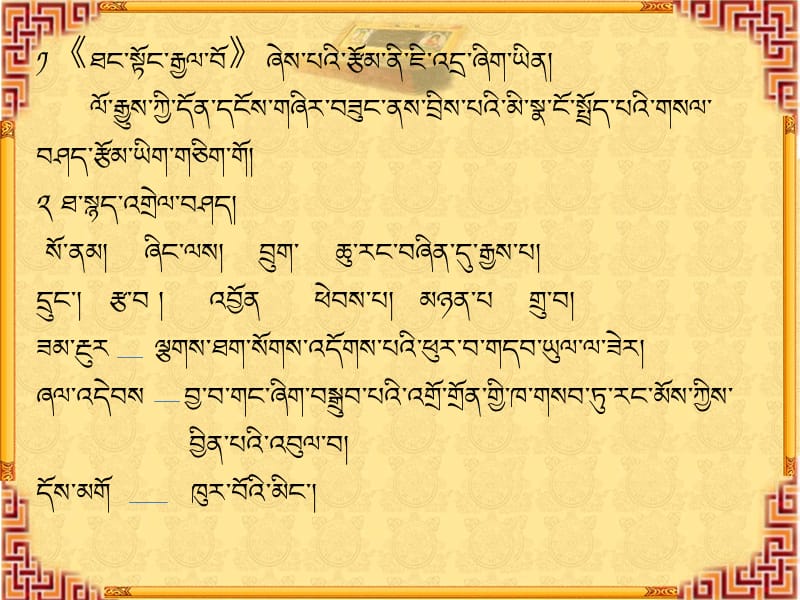 ༡ 《ཐང་སྟོང་རྒྱལ་བོ》 ཞེས་པའི་རྩོམ་ནི་ཇི་འདྲ་ཞིག་ཡིན།
ལོ་རྒྱུས་ཀྱི་དོན་དངོས་གཞིར་བཟུང་ནས་བྲིས་པའི་མི་སྣ་ངོ་སྤྲོད་པའི་གསལ་
བཤད་རྩོམ་ཡིག་གཅིག་གོ།
༢ ཐ་སྙད་འགྲེལ་བཤད།
སོ་ནམ། ཞིང་ལས། བྲུག་ ཆུ་རང་བཞིན་དུ་རྒྱས་པ།
དྲུང་། རྩ་བ ། འབྱོན ཕེབས་པ། མཉན་པ གྲུ་བ།
ཟམ་རྡུར __ ལྕགས་ཐག་སོགས་འདོགས་པའི་ཕུར་བ་གདབ་ཡུལ་ལ་ཟེར།
ཞལ་འདེབས __ བྱ་བ་གང་ཞིག་བསྒྲུབ་པའི་འགྲོ་གྲོན་གྱི་ཁ་གསབ་ཏུ་རང་མོས་ཀྱིས་
བྱིན་པའི་འབུལ་བ།
དོས་མགོ ___ ཁུར་བོའི་མིང་།